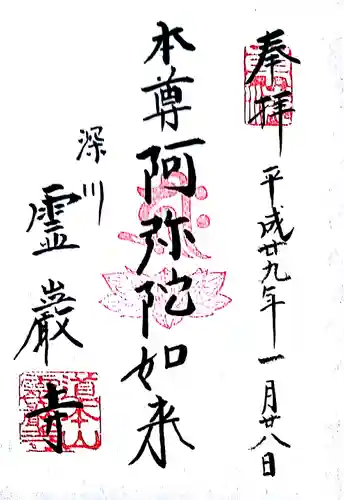 奉拝
平成廿九年一月廿八日
本尊阿弥陀如来
深川
霊巌寺
道本山